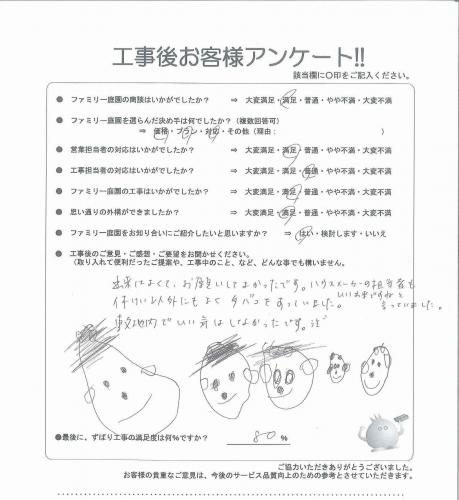 工事後お客様アンケート!!
該当欄に〇印をご記入ください。
● ファミリー庭園の商談はいかがでしたか？ ⇒ 大変満足・満足・普通・やや不満・大変不満
● ファミリー庭園を選らんだ決め手は何でしたか？（複数回答可）
⇒ 価格・プラン・対応・その他（理由： ）
● 営業担当者の対応はいかがでしたか？ ⇒ 大変満足・満足・普通・やや不満・大変不満
● 工事担当者の対応はいかがでしたか？ ⇒ 大変満足・満足・普通・やや不満・大変不満
● ファミリー庭園の工事はいかがでしたか？ ⇒ 大変満足・満足・普通・やや不満・大変不満
● 思い通りの外構ができましたか？ ⇒ 大変満足・満足・普通・やや不満・大変不満
● ファミリー庭園をお知り合いにご紹介したいと思いますか？ ⇒ はい・検討します・いいえ
● 工事後のご意見・ご感想・ご要望をお聞かせください。
（取り入れて便利だったご提案や、工事中のこと、など、どんな事でも構いません。
出来はよくて、お願いしてよかったです。ハウスメーカーの担当者も
いい出来ですねと言っていました。
休けい以外にもよくタバコをすっていました。
敷地内でいい気はしなかったです。
●最後に、ずばり工事の満足度は何%ですか？ 80 %
ご協力いただきありがとうございました。
お客様の貴重なご意見は、今後のサービス品質向上のための参考とさせていただきます。